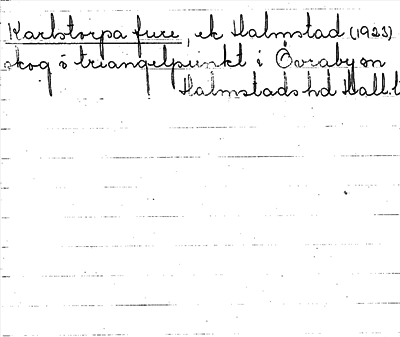 Karlstorpa fure, ek Halmstad (1923)
skog o triangelpunkt i Övraby sn
Halmstads hd Hall.l